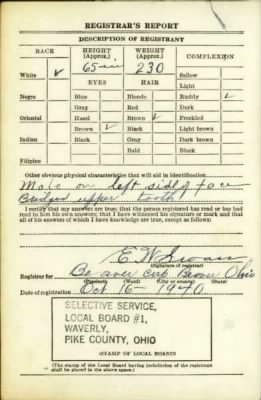 REGISTRAR'S REPORT
DESCRIPTION OF REGISTRANT
RACE HEIGHT (Approx.) WEIGHT (Approx.) COMPLEXION
White ✓ 65 in 230 Sallow
EYES HAIR Light
Negro Blue Blonde Ruddy ✓
Gray Red Dark
Oriental Hazel Brown ✓ Freckled
Brown ✓ Black Light brown
Indian Black Gray Dark brown
Bald Black
Filipino
Other obvious physical characteristics that will aid in identification
Mole on left side of face
Bridged upper tooth
I certify that my answers are true; that the person registered has read or has had
read to him his own answers; that I have witnessed his signature or mark and that
all of his answers of which I have knowledge are true, except as follows:
E W Swan
(Signature of registrar)
Registrar for Beaver Beaver Ohio
(Precinct) (Ward) (City or county) (State)
Date of registration Oct 16 - 1940
SELECTIVE SERVICE,
LOCAL BOARD #1,
WAVERLY,
PIKE COUNTY, OHIO
(STAMP OF LOCAL BOARD)
(The stamp of the Local Board having jurisdiction of the registrant
shall be placed in the above space.)